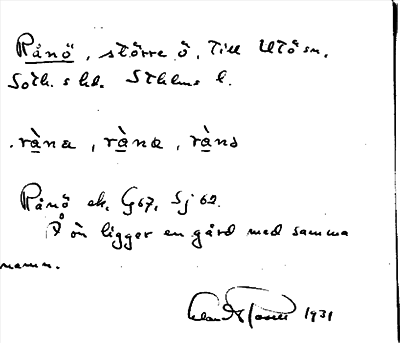 Rånö, större ö, till Utö sn,
Soth. s hd. Sthlms l.
.ràna, ràna, rànə
Rånö ek. G67, Sj 62.
På ön ligger en gård med samma
namn.
1931